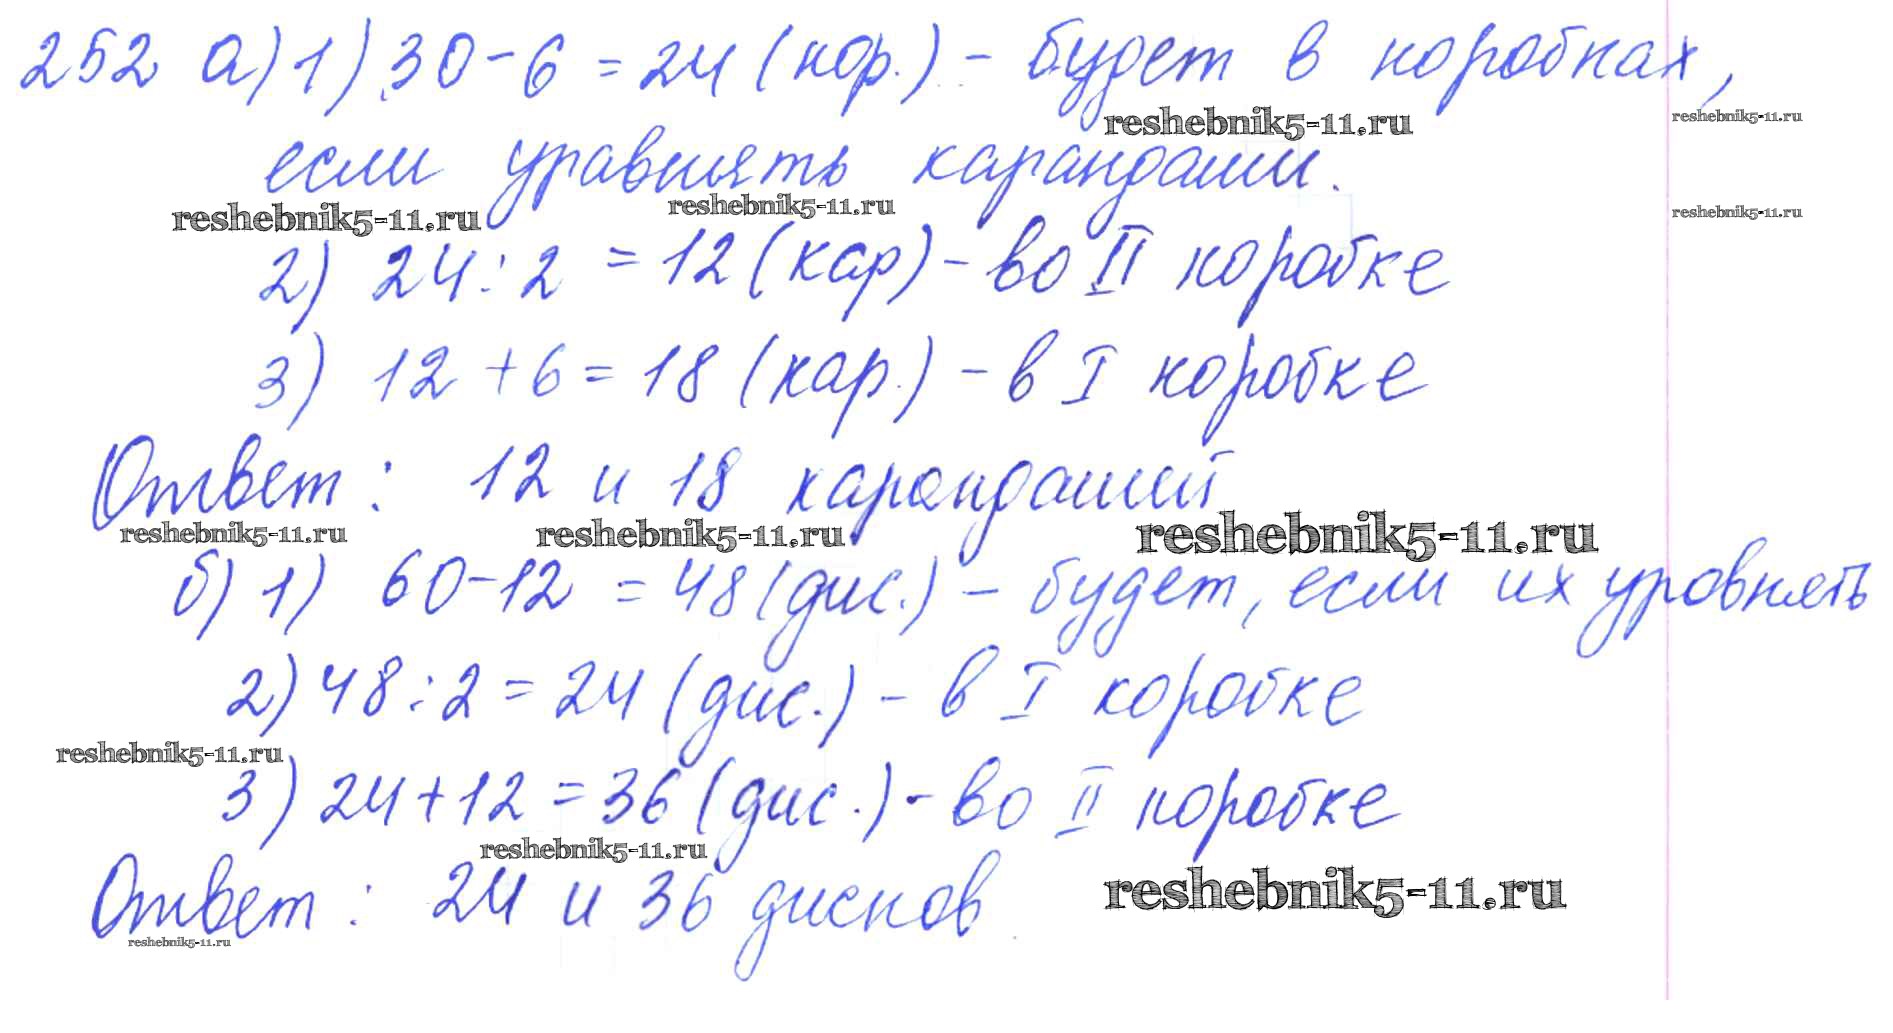 252 а) 1) 30 - 6 = 24 (кор.) - будет в коробках,
reshebnik5-11.ru reshebnik5-11.ru
если уравнять карандаши.
reshebnik5-11.ru reshebnik5-11.ru reshebnik5-11.ru
2) 24 : 2 = 12 (кар) - во II коробке
3) 12 + 6 = 18 (кар.) - в I коробке
Ответ: 12 и 18 карандашей
reshebnik5-11.ru reshebnik5-11.ru reshebnik5-11.ru
б) 1) 60 - 12 = 48 (дис.) - будет, если их уровнять
2) 48 : 2 = 24 (дис.) - в I коробке
reshebnik5-11.ru
3) 24 + 12 = 36 (дис.) - во II коробке
reshebnik5-11.ru
Ответ: 24 и 36 дисков
reshebnik5-11.ru
reshebnik5-11.ru